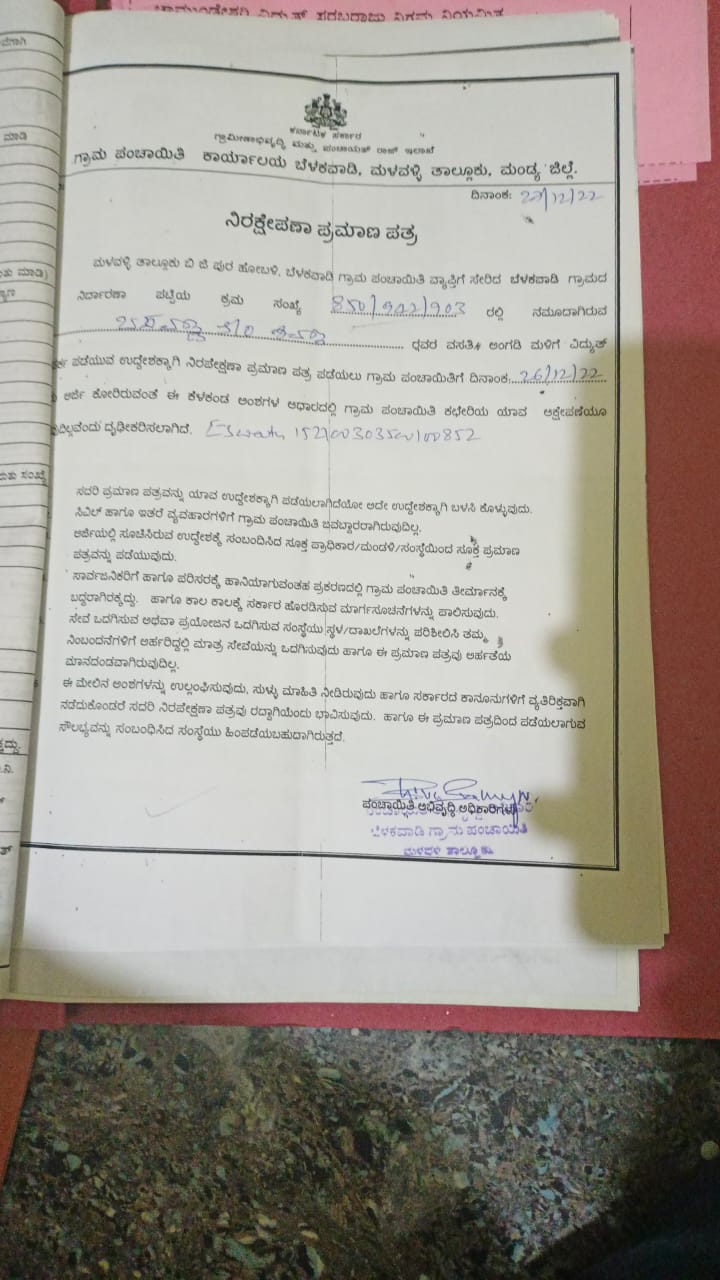 ಚಾಮುಂಡೇಶ್ವರಿ ವಿದ್ಯುತ್ ಸರಬರಾಜು ನಿಗಮ ನಿಯಮಿತ
ಕರ್ನಾಟಕ ಸರ್ಕಾರ
ಗ್ರಾಮೀಣಾಭಿವೃದ್ಧಿ ಮತ್ತು ಪಂಚಾಯತ್ ರಾಜ್ ಇಲಾಖೆ
ಗ್ರಾಮ ಪಂಚಾಯಿತಿ ಕಾರ್ಯಾಲಯ ಬೆಳಕವಾಡಿ, ಮಳವಳ್ಳಿ ತಾಲ್ಲೂಕು, ಮಂಡ್ಯ ಜಿಲ್ಲೆ.
ದಿನಾಂಕ: 27/12/22
ನಿರಕ್ಷೇಪಣಾ ಪ್ರಮಾಣ ಪತ್ರ
ಮಳವಳ್ಳಿ ತಾಲ್ಲೂಕು ಬಿ ಜಿ ಪುರ ಹೋಬಳಿ, ಬೆಳಕವಾಡಿ ಗ್ರಾಮ ಪಂಚಾಯಿತಿ ವ್ಯಾಪ್ತಿಗೆ ಸೇರಿದ ಬೆಳಕವಾಡಿ ಗ್ರಾಮದ
ನಿರ್ದಾರಣಾ ಪಟ್ಟಿಯ ಕ್ರಮ ಸಂಖ್ಯೆ 850/902/903 ರಲ್ಲಿ ನಮೂದಾಗಿರುವ
S/o ರವರ ವಸತಿ/ ಅಂಗಡಿ ಮಳಿಗೆ ವಿದ್ಯುತ್
ಪಡೆಯುವ ಉದ್ದೇಶಕ್ಕಾಗಿ ನಿರಪೇಕ್ಷಣಾ ಪ್ರಮಾಣ ಪತ್ರ ಪಡೆಯಲು ಗ್ರಾಮ ಪಂಚಾಯಿತಿಗೆ ದಿನಾಂಕ: 26/12/22
ಅರ್ಜಿ ಕೋರಿರುವಂತೆ ಈ ಕೆಳಕಂಡ ಅಂಶಗಳ ಆಧಾರದಲ್ಲಿ ಗ್ರಾಮ ಪಂಚಾಯಿತಿ ಕಛೇರಿಯ ಯಾವ ಆಕ್ಷೇಪಣೆಯೂ
ದೃಢೀಕರಿಸಲಾಗಿದೆ. Eswathu
ಸದರಿ ಪ್ರಮಾಣ ಪತ್ರವನ್ನು ಯಾವ ಉದ್ದೇಶಕ್ಕಾಗಿ ಪಡೆಯಲಾಗಿದೆಯೋ ಅದೇ ಉದ್ದೇಶಕ್ಕಾಗಿ ಬಳಸಿ ಕೊಳ್ಳುವುದು.
ಸಿವಿಲ್ ಹಾಗೂ ಇತರೆ ವ್ಯವಹಾರಗಳಿಗೆ ಗ್ರಾಮ ಪಂಚಾಯಿತಿ ಜವಬ್ದಾರರಾಗಿರುವುದಿಲ್ಲ.
ಅರ್ಜಿಯಲ್ಲಿ ಸೂಚಿಸಿರುವ ಉದ್ದೇಶಕ್ಕೆ ಸಂಬಂದಿಸಿದ ಸೂಕ್ತ ಪ್ರಾಧಿಕಾರ/ಮಂಡಳಿ/ಸಂಸ್ಥೆಯಿಂದ ಸೂಕ್ತ ಪ್ರಮಾಣ
ಪತ್ರವನ್ನು ಪಡೆಯುವುದು.
ಸಾರ್ವಜನಿಕರಿಗೆ ಹಾಗೂ ಪರಿಸರಕ್ಕೆ ಹಾನಿಯಾಗುವಂತಹ ಪ್ರಕರಣದಲ್ಲಿ ಗ್ರಾಮ ಪಂಚಾಯಿತಿ ತೀರ್ಮಾನಕ್ಕೆ
ಬದ್ದರಾಗಿರತಕ್ಕದ್ದು. ಹಾಗೂ ಕಾಲ ಕಾಲಕ್ಕೆ ಸರ್ಕಾರ ಹೊರಡಿಸುವ ಮಾರ್ಗಸೂಚನೆಗಳನ್ನು ಪಾಲಿಸುವುದು.
ಸೇವೆ ಒದಗಿಸುವ ಅಥವಾ ಪ್ರಯೋಜನ ಒದಗಿಸುವ ಸಂಸ್ಥೆಯು ಸ್ಥಳ/ದಾಖಲೆಗಳನ್ನು ಪರಿಶೀಲಿಸಿ ತಮ್ಮ
ನಿಂಬಂದನೆಗಳಿಗೆ ಅರ್ಹರಿದ್ದಲ್ಲಿ ಮಾತ್ರ ಸೇವೆಯನ್ನು ಒದಗಿಸುವುದು ಹಾಗೂ ಈ ಪ್ರಮಾಣ ಪತ್ರವು ಅರ್ಹತೆಯ
ಮಾನದಂಡವಾಗಿರುವುದಿಲ್ಲ.
ಈ ಮೇಲಿನ ಅಂಶಗಳನ್ನು ಉಲ್ಲಂಘಿಸುವುದು, ಸುಳ್ಳು ಮಾಹಿತಿ ನೀಡಿರುವುದು ಹಾಗೂ ಸರ್ಕಾರದ ಕಾನೂನುಗಳಿಗೆ ವ್ಯತಿರಿಕ್ತವಾಗಿ
ನಡೆದುಕೊಂಡರೆ ಸದರಿ ನಿರಪೇಕ್ಷಣಾ ಪತ್ರವು ರದ್ದಾಗಿಯೆಂದು ಭಾವಿಸುವುದು. ಹಾಗೂ ಈ ಪ್ರಮಾಣ ಪತ್ರದಿಂದ ಪಡೆಯಲಾಗುವ
ಸೌಲಭ್ಯವನ್ನು ಸಂಬಂಧಿಸಿದ ಸಂಸ್ಥೆಯು ಹಿಂಪಡೆಯಬಹುದಾಗಿರುತ್ತದೆ.
ಪಂಚಾಯ್ತಿ ಅಭಿವೃದ್ಧಿ ಅಧಿಕಾರಿಗಳು
ಬೆಳಕವಾಡಿ ಗ್ರಾಮ ಪಂಚಾಯಿತಿ
ಮಳವಳ್ಳಿ ತಾಲ್ಲೂಕು